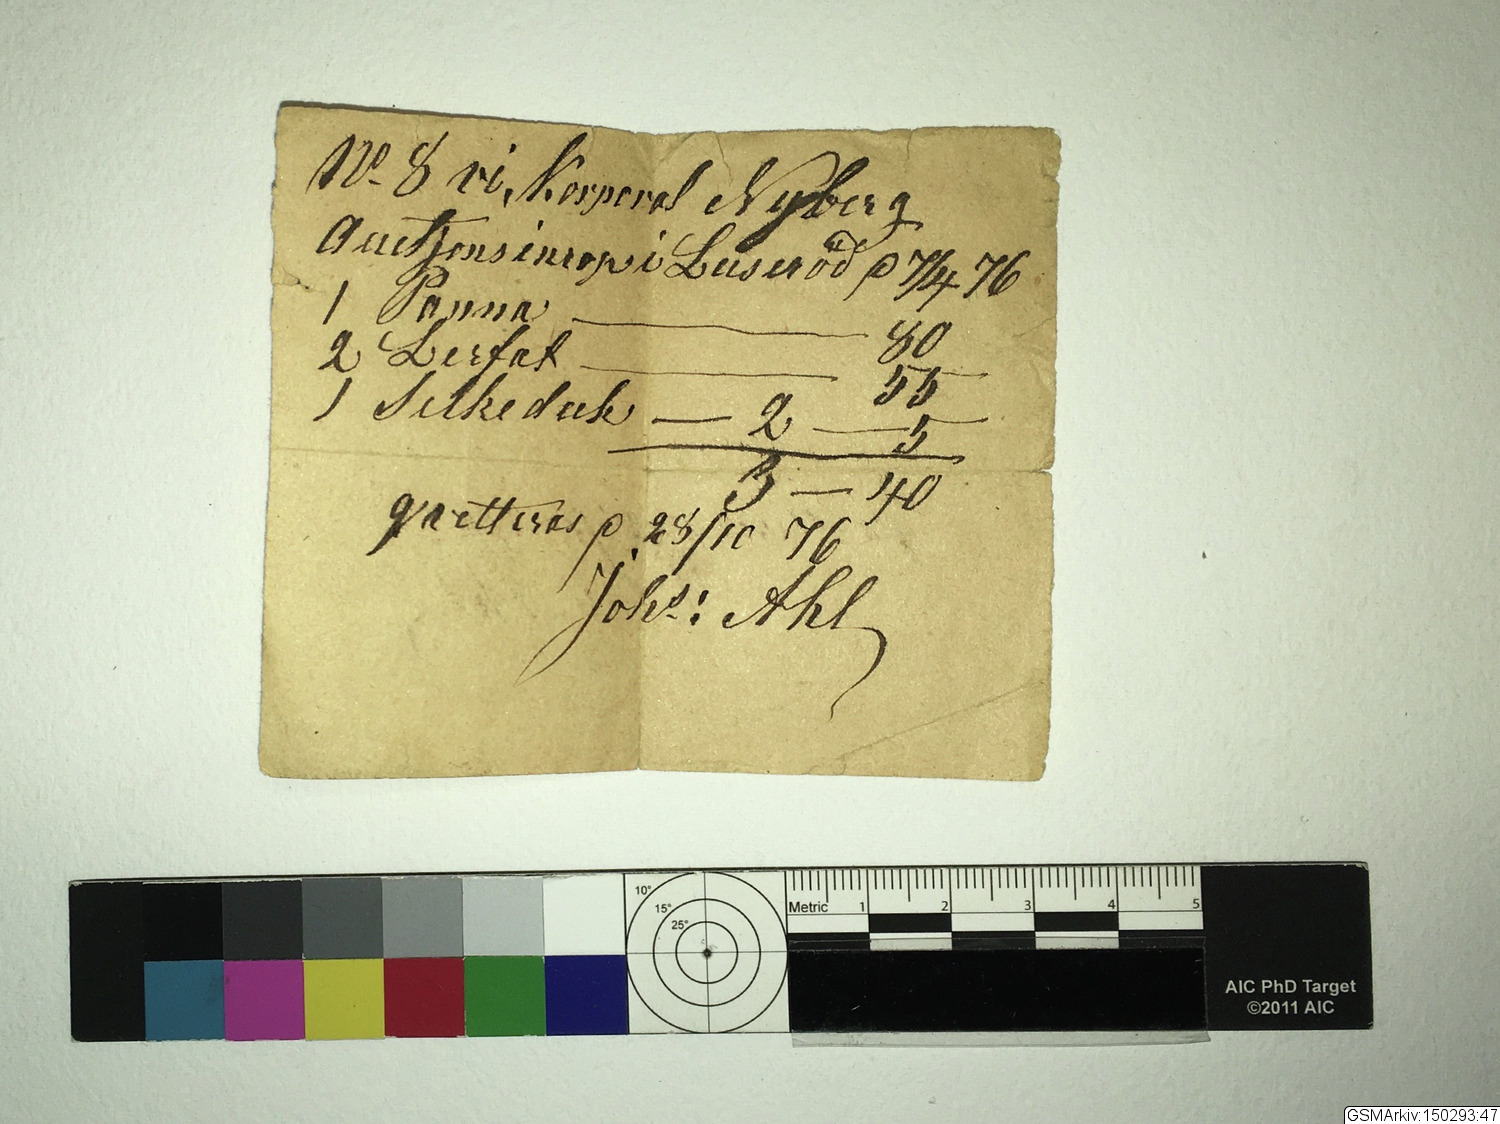 No 8 vi, Korporal Nyberg
Auctionsinrop i Luseröd p 7/4 76
1 Panna — 80
2 Lerfat — 55
1 Silkeduk — 2 — 5
3 — 40
qvitteras p 28/10 76
Johs: Ahl
10°
15°
25°
Metric 1 2 3 4 5
AIC PhD Target
©2011 AIC
GSMArkiv:150293:47